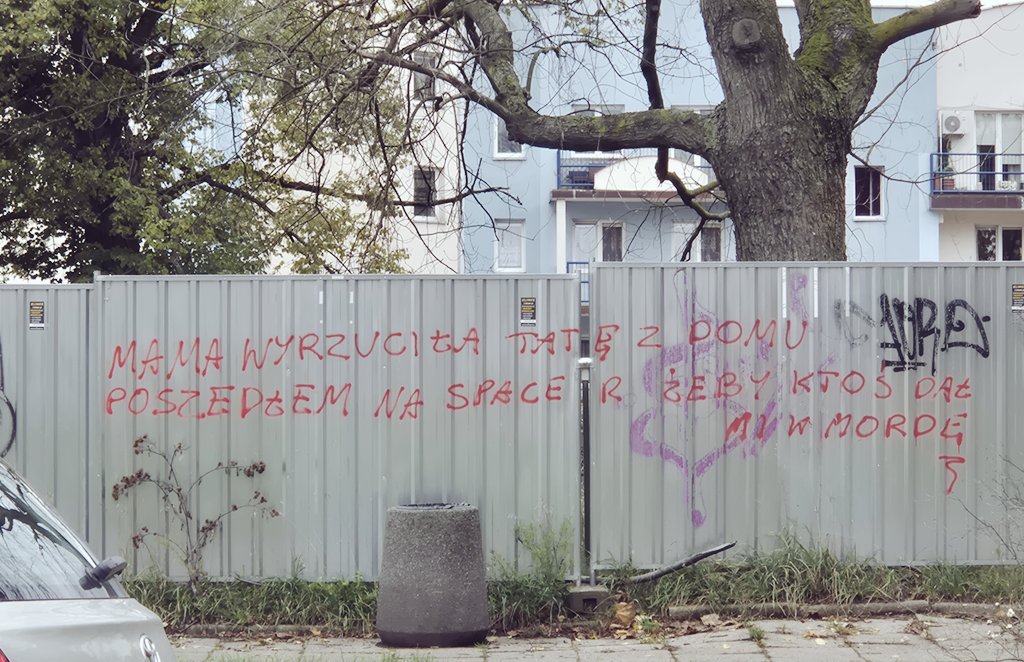 MAMA WYRZUCIŁA TATĘ Z DOMU
POSZEDŁEM NA SPACER ŻEBY KTOŚ DAŁ
MI W MORDĘ